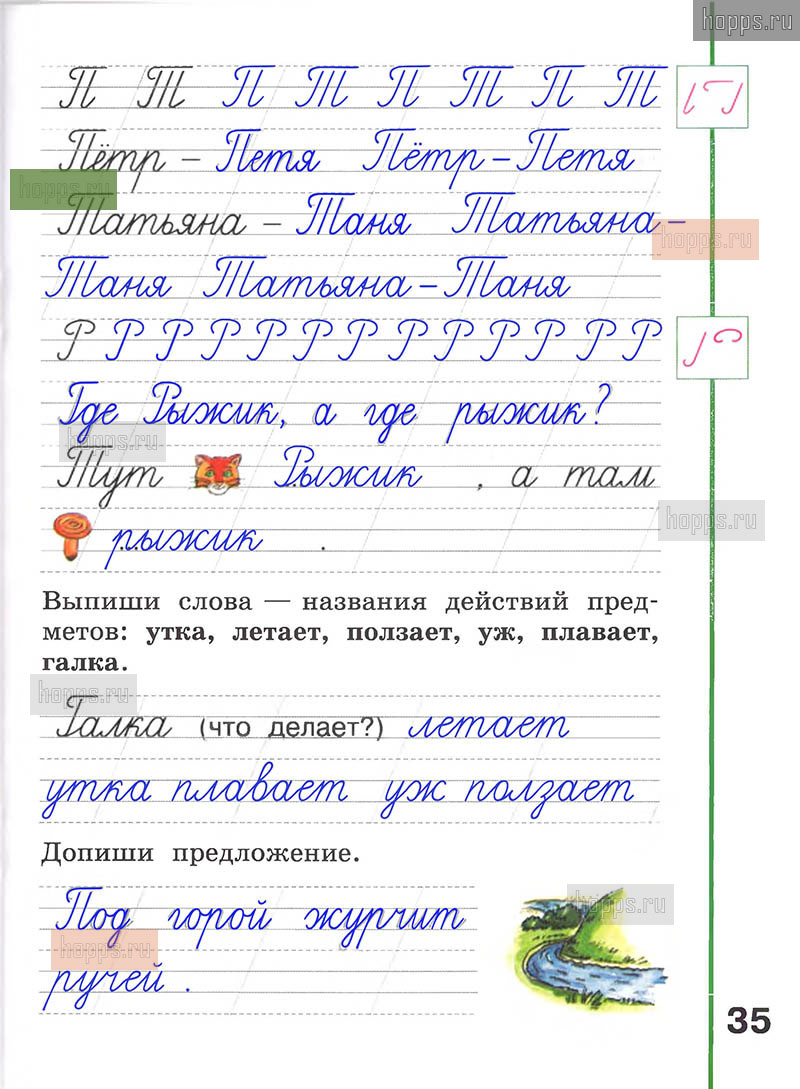 hopps.ru
П Т П Т П Т П Т
Пётр – Петя Пётр – Петя
hopps.ru
Татьяна – Таня Татьяна –
hopps.ru
Таня Татьяна – Таня
Р Р Р Р Р Р Р Р Р Р Р Р Р
Где Рыжик, а где рыжик?
hopps.ru
Тут Рыжик , а там
hopps.ru
рыжик .
Выпиши слова — названия действий пред-
метов: утка, летает, ползает, уж, плавает,
галка.
hopps.ru
Галка (что делает?) летает
утка плавает уж ползает
Допиши предложение.
hopps.ru
Под горой журчит
hopps.ru
ручей .
35